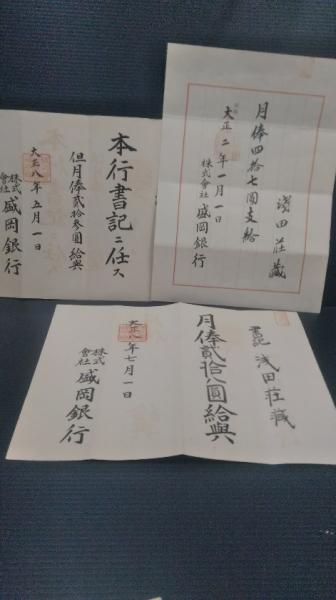 淺田荘藏
月俸四拾七圓支給
大正二年一月一日
株式會社 盛岡銀行
本行書記ニ任ス
但月俸貳拾参圓給與
大正八年五月一日
株式會社 盛岡銀行
書記 浅田荘藏
月俸貳拾八圓給與
大正八年七月一日
株式會社 盛岡銀行